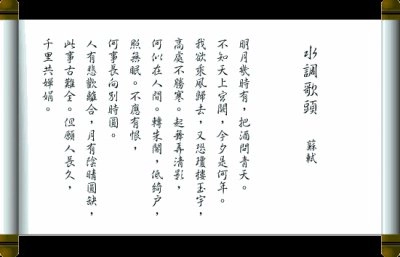 水調歌頭
蘇軾
明月幾時有，把酒問青天。
不知天上宮闕，今夕是何年。
我欲乘風歸去，又恐瓊樓玉宇，
高處不勝寒。起舞弄清影，
何似在人間。轉朱閣，低綺戶，
照無眠。不應有恨，
何事長向別時圓。
人有悲歡離合，月有陰晴圓缺，
此事古難全。但願人長久，
千里共嬋娟。